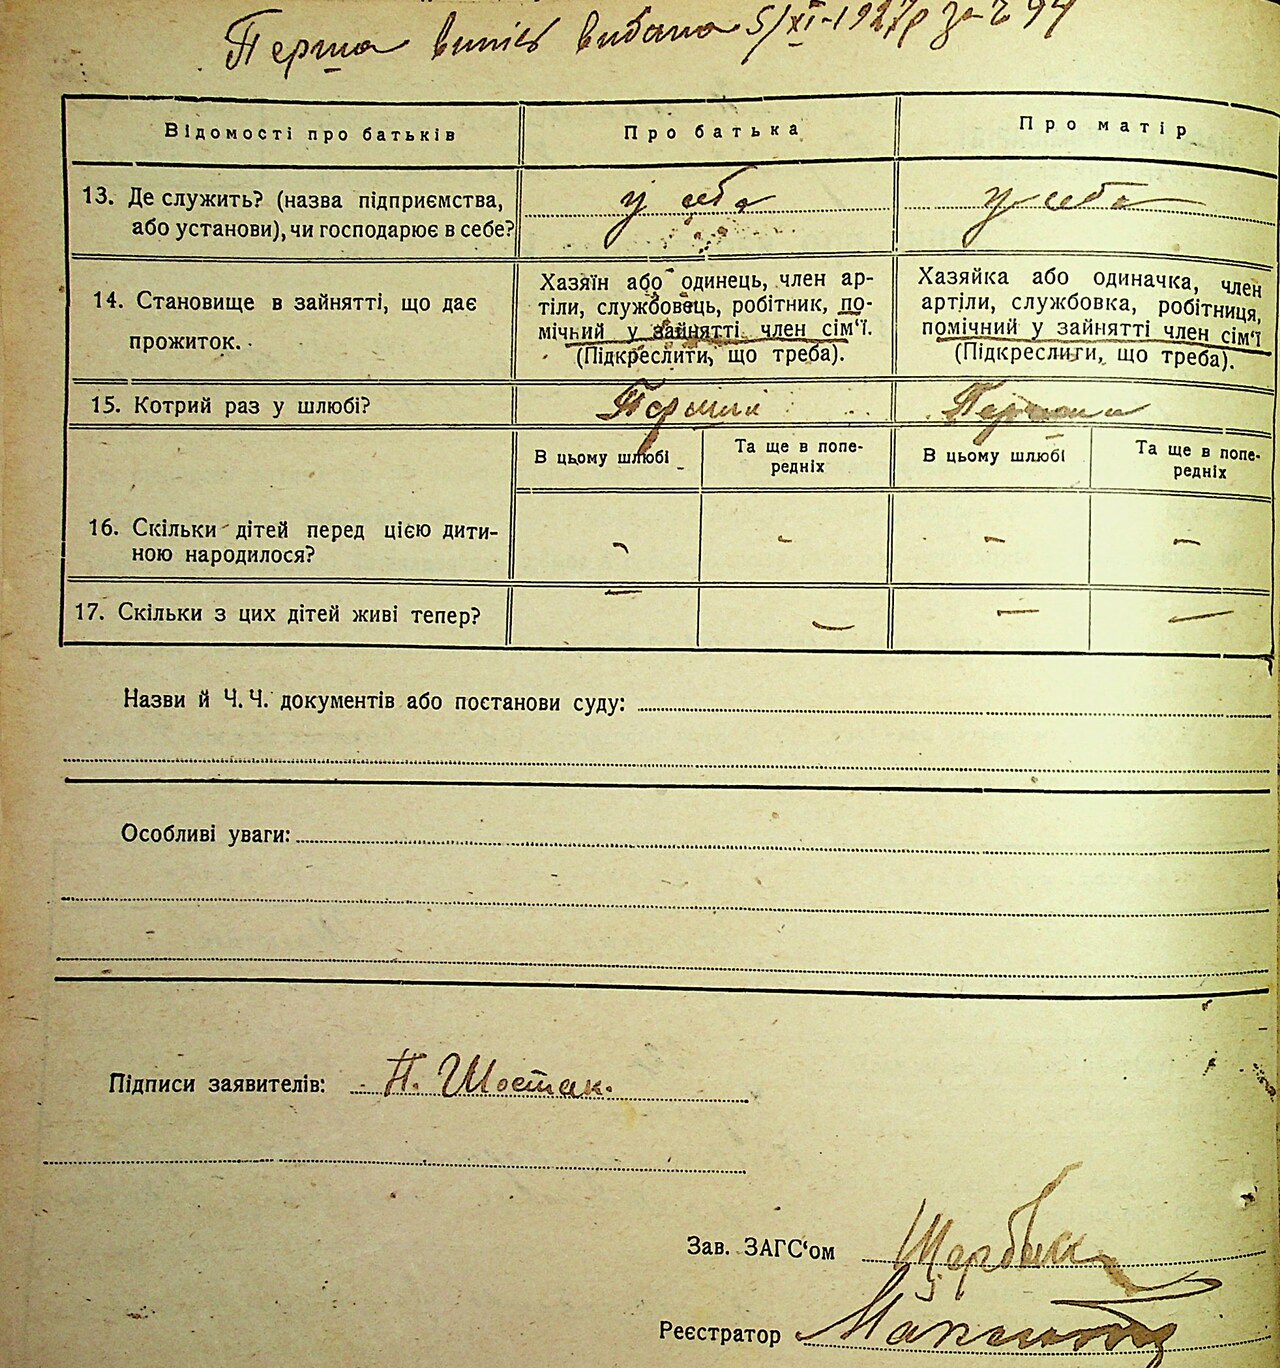 Перша випись видана 5/XI-1927р за ч 94
Відомості про батьків
Про батька
Про матір
13. Де служить? (назва підприємства,
або установи), чи господарює в себе?
у себа
у себа
14. Становище в зайнятті, що дає
прожиток.
Хазяїн або одинець, член ар-
тіли, службовець, робітник, по-
мічний у зайнятті член сім‘ї.
(Підкреслити, що треба).
Хазяйка або одиначка, член
артіли, службовка, робітниця,
помічний у зайнятті член сім‘ї
(Підкреслити, що треба).
15. Котрий раз у шлюбі?
Перший
В цьому шлюбі
Та ще в попе-
редніх
В цьому шлюбі
Та ще в попе-
редніх
16. Скільки дітей перед цією дити-
ною народилося?
- - - -
17. Скільки з цих дітей живі тепер?
- - - -
Назви й Ч. Ч. документів або постанови суду:
Особливі уваги:
Підписи заявителів: П. Шостак.
Зав. ЗАГС‘ом Щербак
Реєстратор